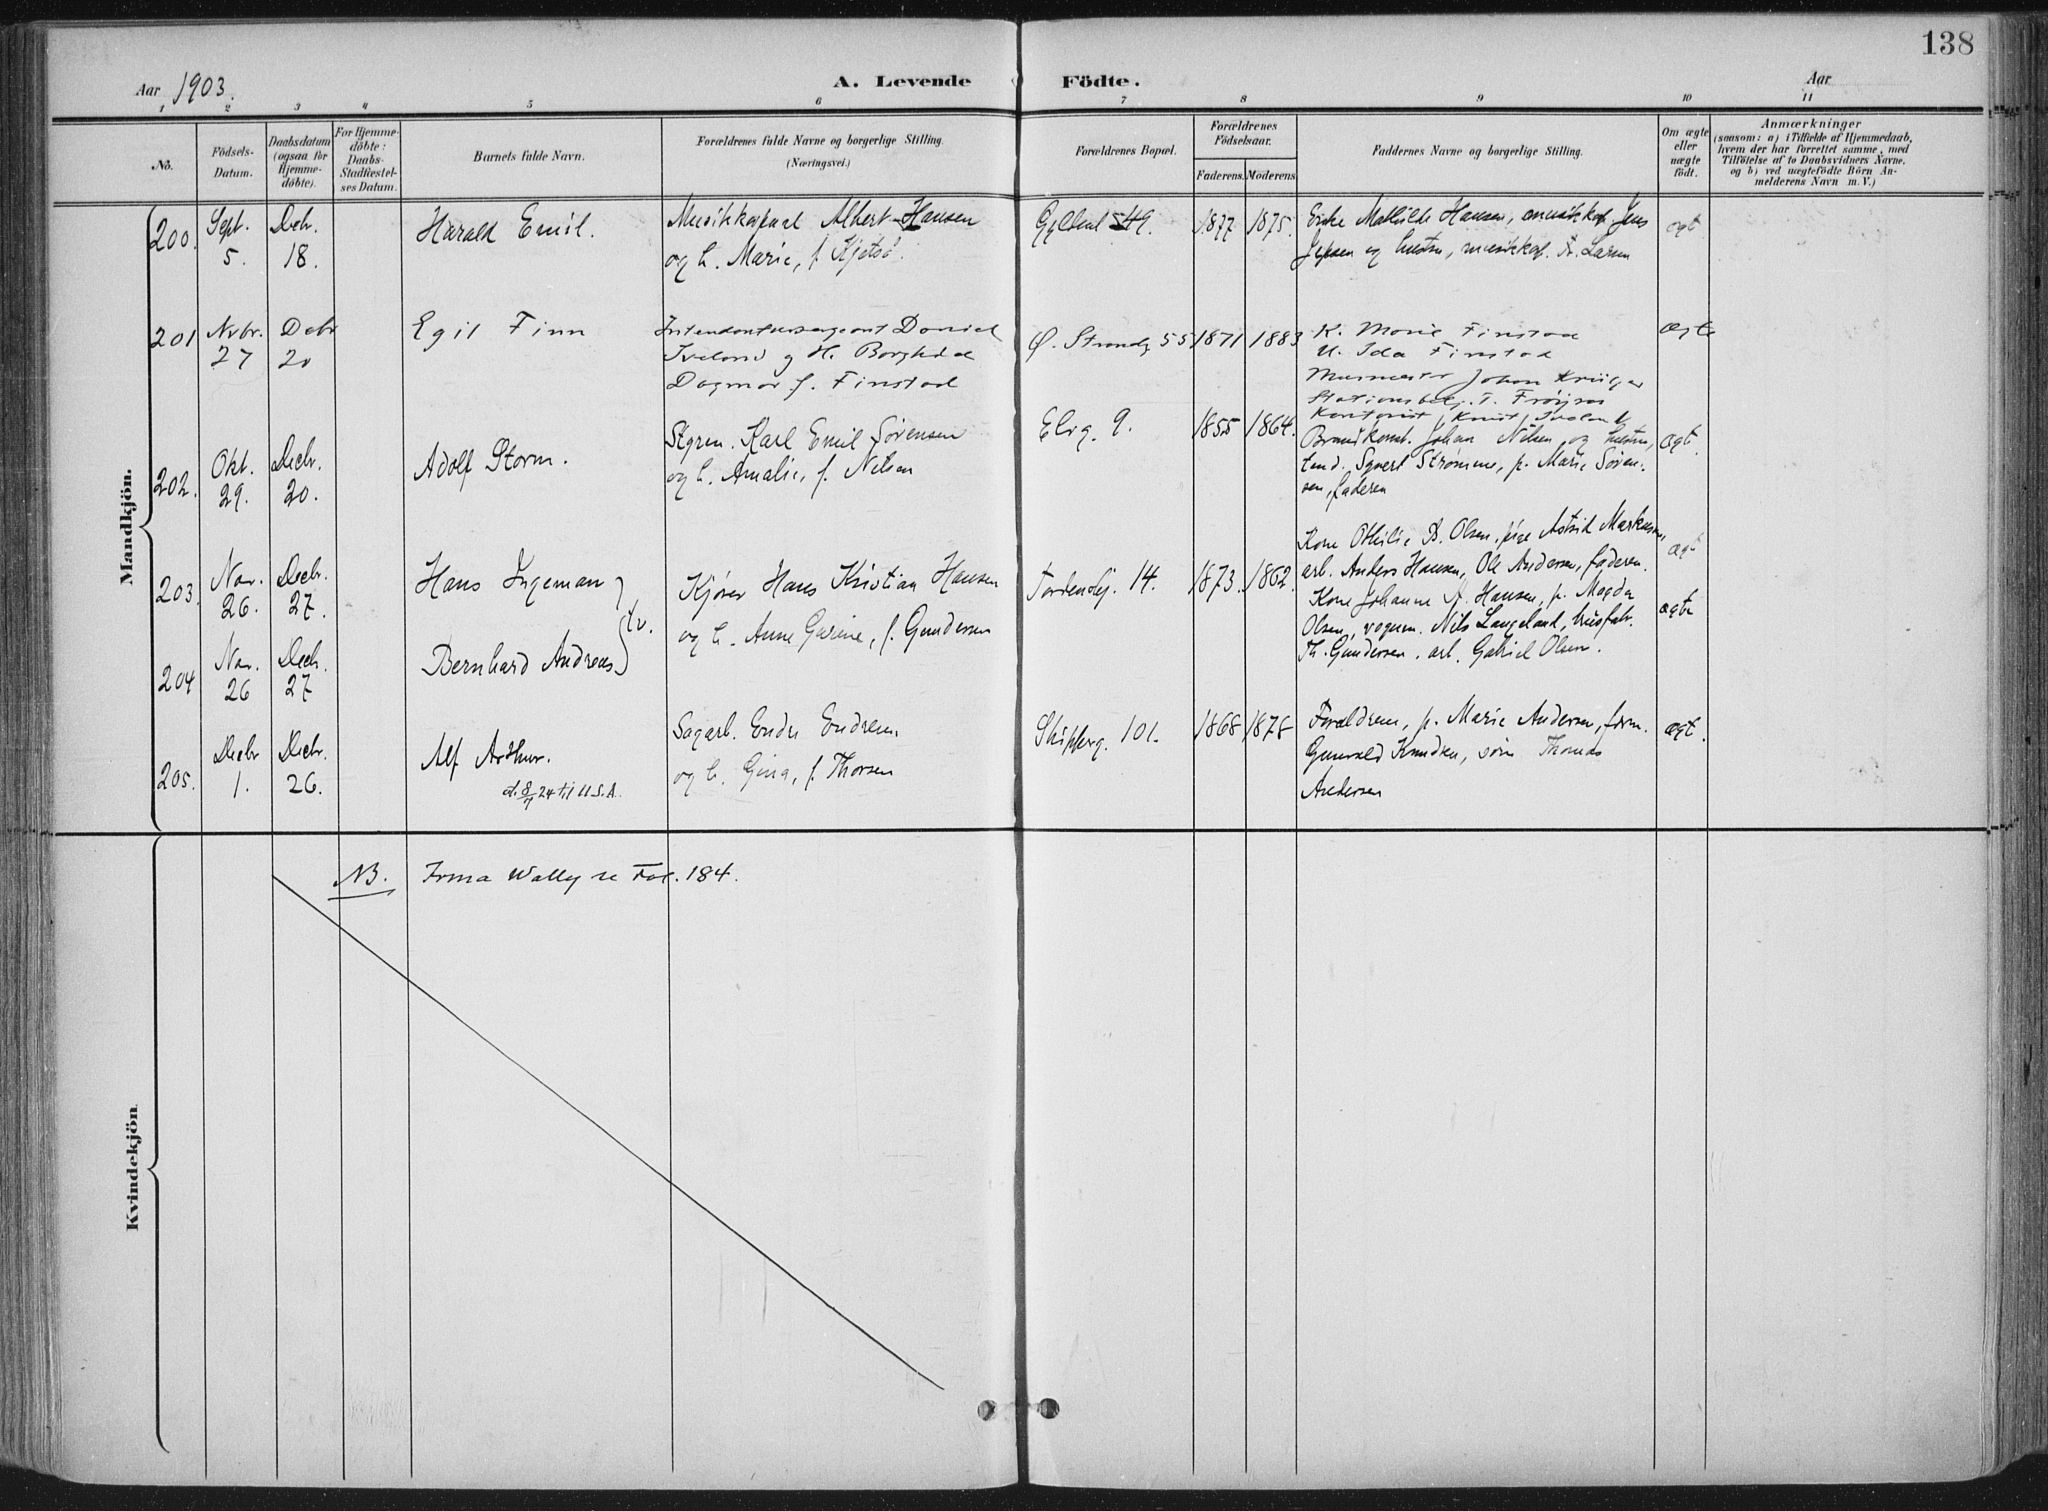 138
Aar 1903. A. Levende Födte. Aar
1 2 3 4 5 6 7 8 9 10 11
No.
Födsels-Datum.
Daabsdatum (ogsaa for Hjemmedöbte).
For Hjemmedöbte: Daabs-Stadfæstelses Datum.
Barnets fulde Navn.
Forældrenes fulde Navne og borgerlige Stilling. (Næringsvei.)
Forældrenes Bopæl.
Forældrenes Födselsaar.
Faderens. Moderens.
Faddernes Navne og borgerlige Stilling.
Om ægte eller uægte födt.
Anmærkninger
(saasom: a) i Tilfælde af Hjemmedaab,
hvem der har forrettet samme, med
Tilföielse af to Daabsvidners Navne,
og b) ved uægtefödte Börn An-
melderens Navn m. V.)
Mandkjön.
200. Sept. 5. Decbr. 18. Harald Emil.
Albert Hansen
og h. Marie, f.
49. 1877 1875.
Enke Mathilde Hansen, Jens
Jepsen og hustru, A. Larsen
201 Nvbr. 27 Dcbr 20 Egil Finn
Intendantursergeant Daniel
Iveland og H. Borghild
Dagmar f. Finstad
Ø. Strandg 55 1871 1883
K. Marie Finstad
U. Ida Finstad
Murmester Johan Krüger
ægte
202. Okt. 29. Decbr. 20. Adolf Storm.
Styrm. Karl Emil Sørensen
og h. Amalie, f. Nilsen
Elvg. 9. 1855 1864.
Brandkonst. Johan Nilsen og hustru,
Syvert Strømme, p. Marie Søren-
sen, faderen
ægt.
203. Nov. 26. Decbr. 27. Hans Ingeman
204 Nov. 26 Decbr. 27 Bernhard Andreas
tv.
Kjører Hans Kristian Hansen
og h. Anne Gurine, f. Gundersen
Tordenskj. 14. 1873. 1862.
Kone Othilie B. Olsen, pige Astrid Markussen,
arb. Anders Hansen, Ole Andersen, faderen.
ægt
Kone Johanne Hansen, p. Magda
Olsen, vognm. Nils Langeland,
Th. Gundersen, arb. Gabriel Olsen.
ægte
205. Decbr 1. Decbr. 26. Alf Arthur.
d. 8/7 24 til U.S.A.
Sagarb. Endre Endresen
og h. Gina, f. Thorsen
Skipperg. 101. 1868 1878
Forældrene, p. Marie Andersen, form.
Gunvald Knudsen, søm. Thomas
Andersen
ægt.
Kvindekjön.
NB. Irma Wally se Fol. 184.